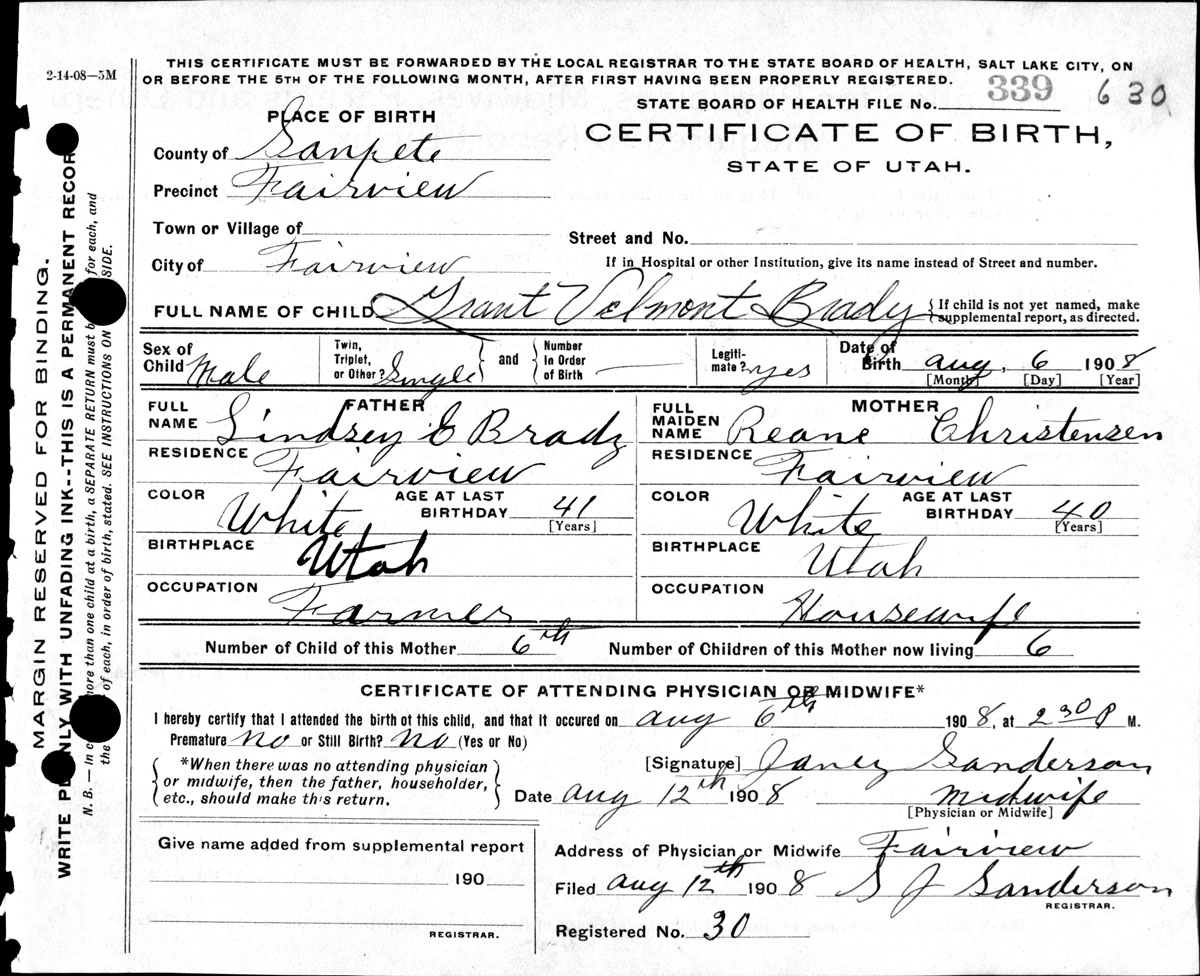 2-14-08—5M
THIS CERTIFICATE MUST BE FORWARDED BY THE LOCAL REGISTRAR TO THE STATE BOARD OF HEALTH, SALT LAKE CITY, ON
OR BEFORE THE 5TH OF THE FOLLOWING MONTH, AFTER FIRST HAVING BEEN PROPERLY REGISTERED.
STATE BOARD OF HEALTH FILE No. 339 630
PLACE OF BIRTH
CERTIFICATE OF BIRTH,
STATE OF UTAH.
County of Sanpete
Precinct Fairview
Town or Village of
Street and No.
City of Fairview
If in Hospital or other Institution, give its name instead of Street and number.
FULL NAME OF CHILD Grant Velmont Brady {If child is not yet named, make
supplemental report, as directed.
Sex of Child Male
Twin, Triplet, or Other? Single
and
Number in Order of Birth
Legitimate? yes
Date of Birth Aug, 6 1908
[Month] [Day] [Year]
FATHER
FULL NAME Lindsey E Brady
RESIDENCE Fairview
COLOR White
AGE AT LAST BIRTHDAY 41
[Years]
BIRTHPLACE Utah
OCCUPATION Farmer
MOTHER
FULL MAIDEN NAME Reane Christensen
RESIDENCE Fairview
COLOR White
AGE AT LAST BIRTHDAY 40
[Years]
BIRTHPLACE Utah
OCCUPATION Housewife
Number of Child of this Mother 6th
Number of Children of this Mother now living 6
CERTIFICATE OF ATTENDING PHYSICIAN OR MIDWIFE*
I hereby certify that I attended the birth of this child, and that it occured on Aug 6th 1908, at 2 30 P M.
Premature No or Still Birth? No (Yes or No)
*When there was no attending physician
or midwife, then the father, householder,
etc., should make this return.
[Signature] Janey Sanderson
Date Aug 12th 1908 Midwife
[Physician or Midwife]
Give name added from supplemental report
190
REGISTRAR.
Address of Physician or Midwife Fairview
Filed Aug 12th 1908 S J Sanderson
REGISTRAR.
Registered No. 30
MARGIN RESERVED FOR BINDING.
WRITE PLAINLY WITH UNFADING INK--THIS IS A PERMANENT RECOR
N. B.— In c more than one child at a birth, a SEPARATE RETURN must b for each, and
the of each, in order of birth, stated. SEE INSTRUCTIONS ON SIDE.